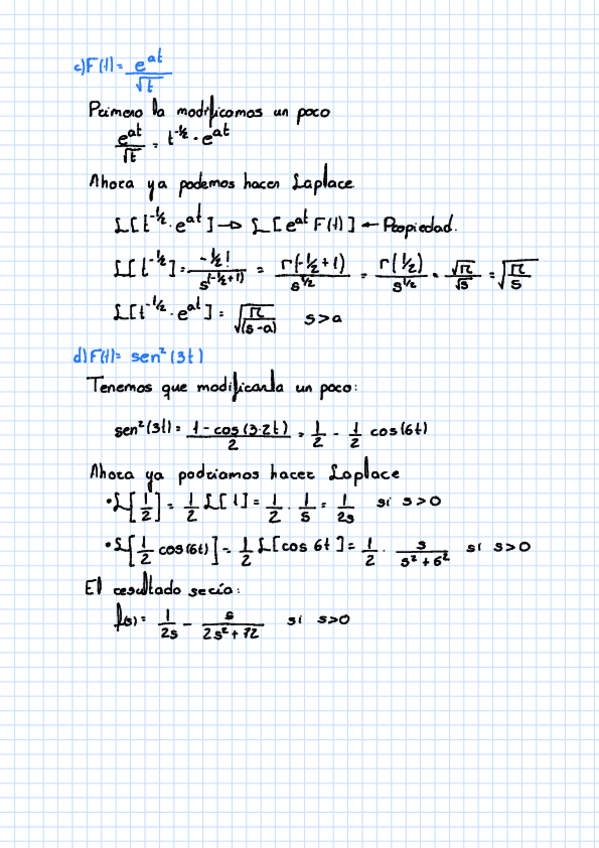 c) F(t) = e^{at}/√t
Primero la modificamos un poco
e^{at}/√t = t^{-1/2} · e^{at}
Ahora ya podemos hacer Laplace
L[t^{-1/2} · e^{at}] → L[e^{at} F(t)] ← Propiedad.
L[t^{-1/2}] = -1/2!/s^{(-1/2+1)} = Γ(-1/2+1)/s^{1/2} = Γ(1/2)/s^{1/2} = √π/√s = √(π/s)
L[t^{-1/2} · e^{at}] = √(π/(s-a)) s>a
d) F(t) = sen²(3t)
Tenemos que modificarla un poco:
sen²(3t) = (1 - cos(3·2t))/2 = 1/2 - 1/2 cos(6t)
Ahora ya podriamos hacer Laplace
• L[1/2] = 1/2 L[1] = 1/2 · 1/s = 1/2s si s>0
• L[1/2 cos(6t)] = 1/2 L[cos 6t] = 1/2 · s/(s²+6²) si s>0
El resultado sería:
f(s) = 1/2s - s/(2s²+72) si s>0